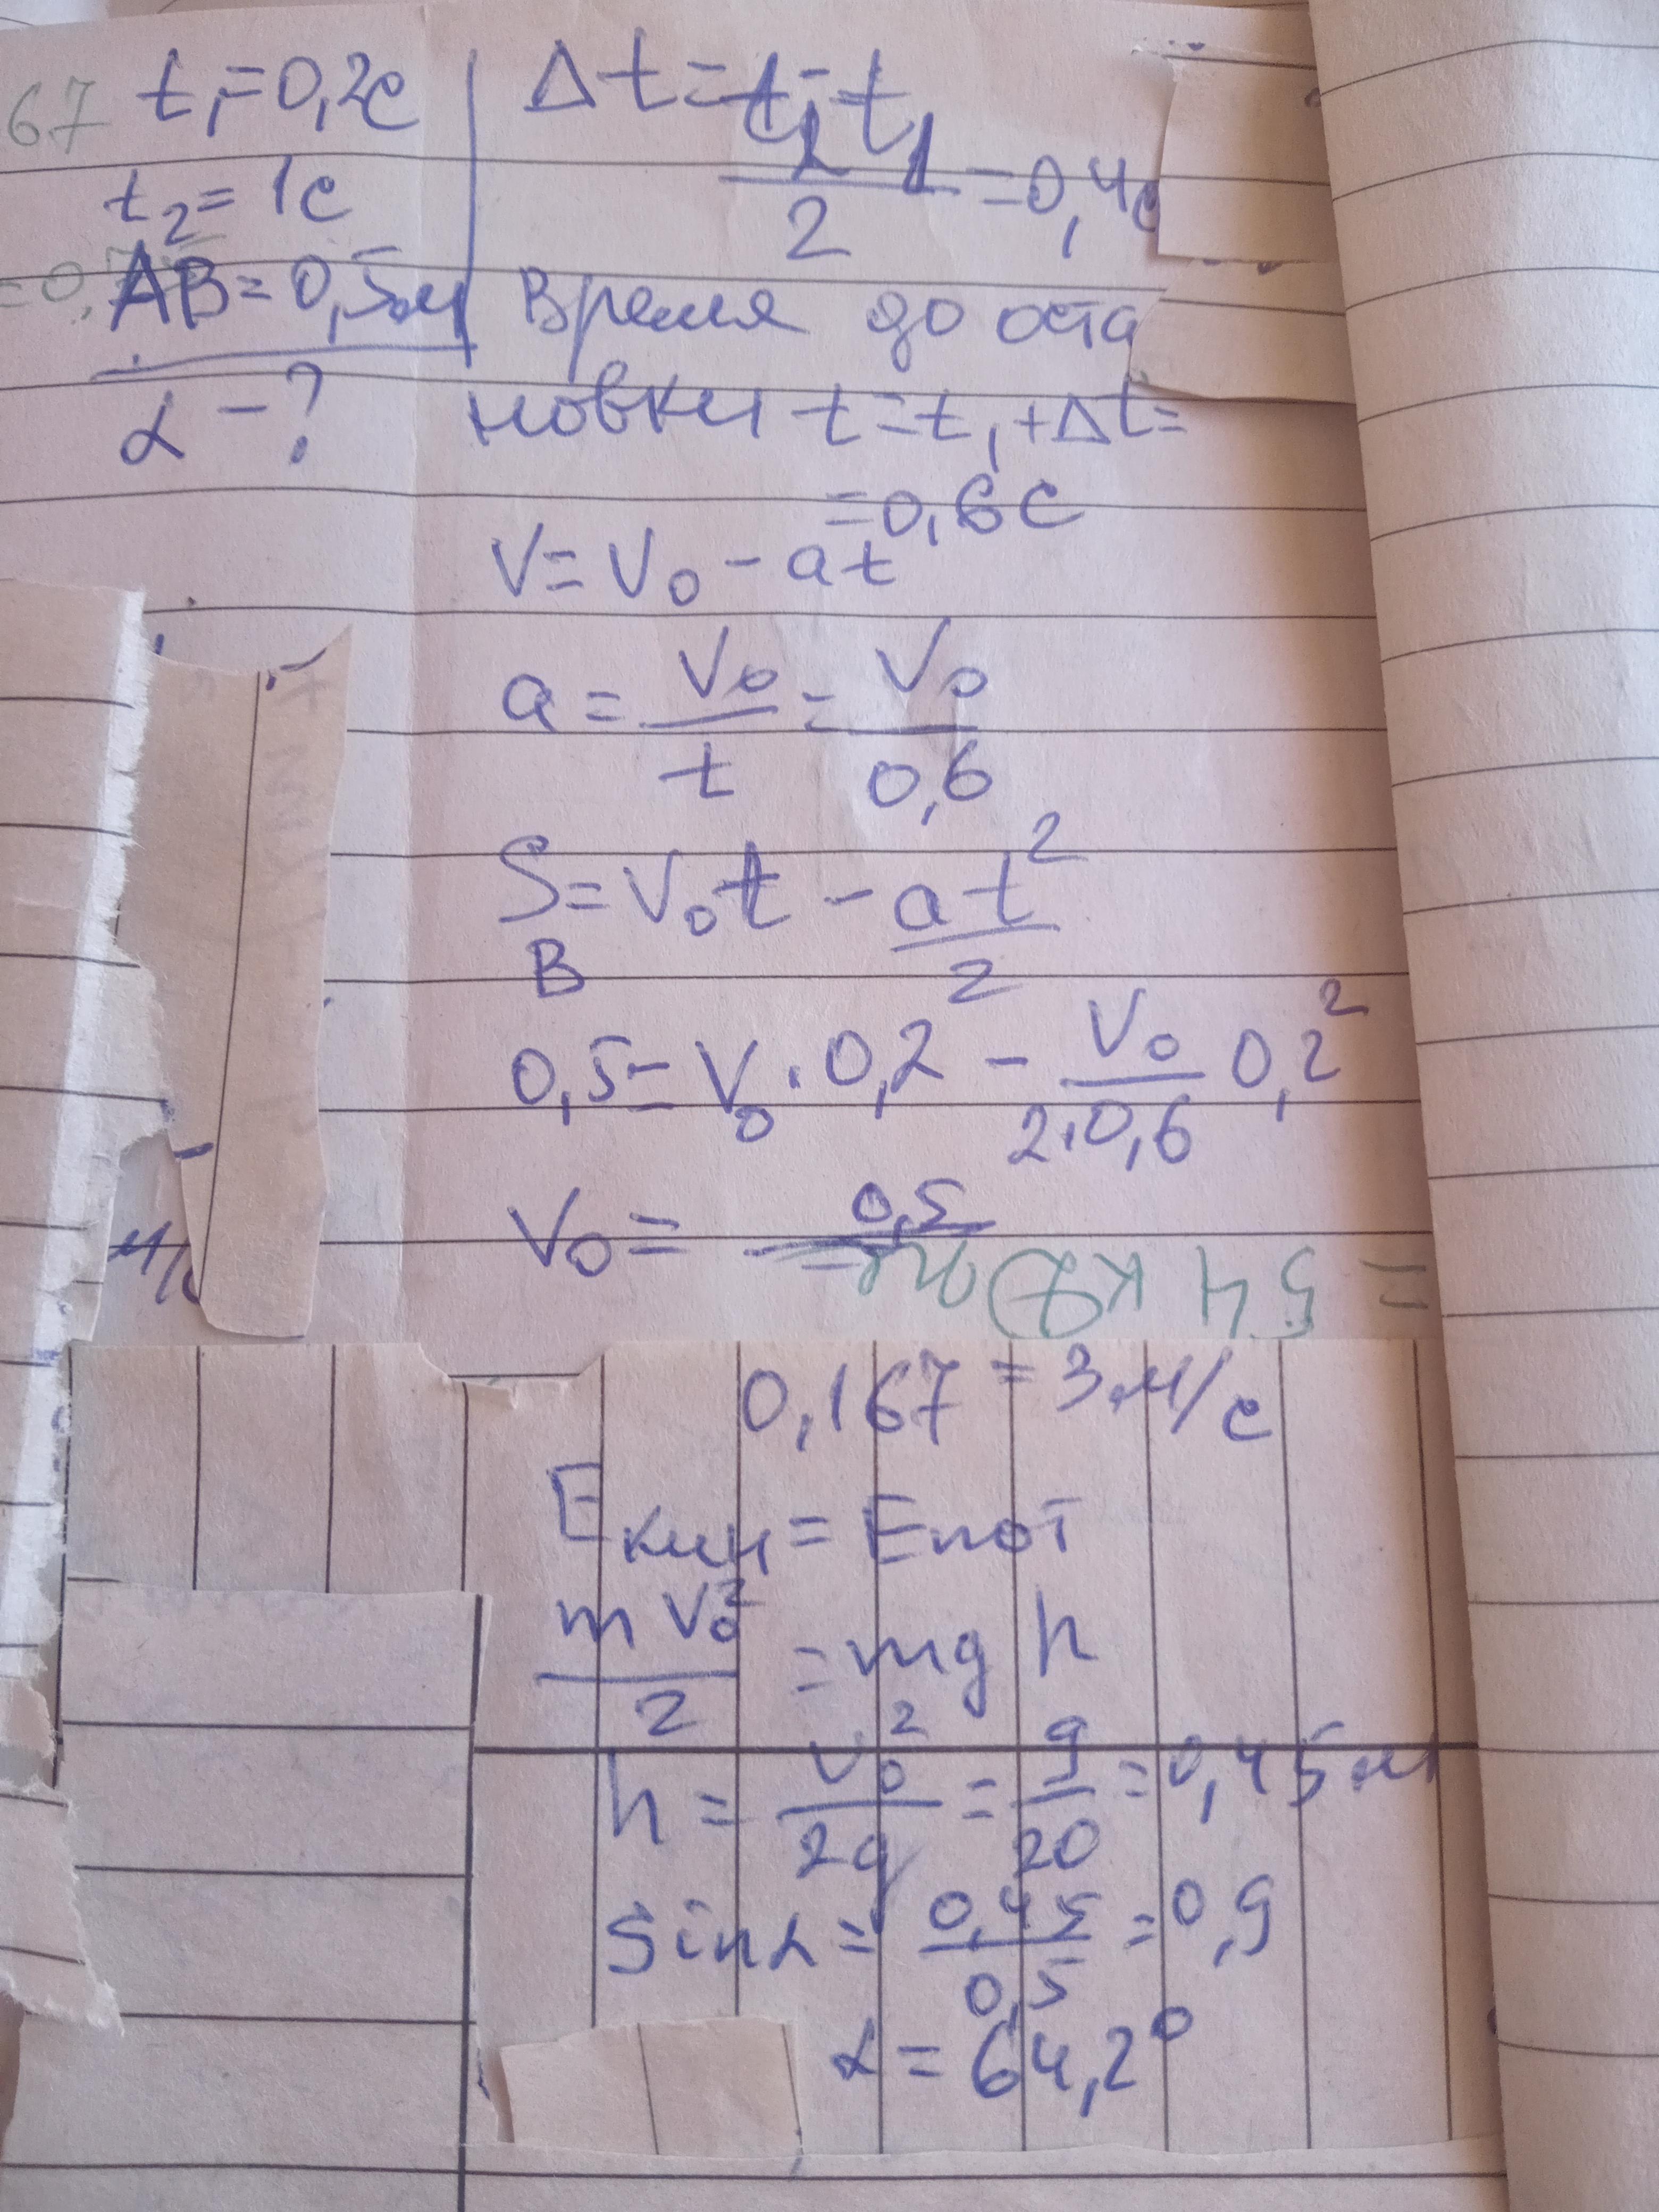 67 t₁=0,2с
t₂=1с
AB=0,5м
α-?
Δt=(t₂-t₁)/2=0,4с
Время до оста
новки t=t₁+Δt=
=0,6с
V=V₀-at
a=V₀/t=V₀/0,6
S=V₀t-at²/2
B
0,5=V₀·0,2-V₀/(2·0,6) 0,2²
V₀=0,5/
= 54 кДж
0,167=3м/с
Eкин=Eпот
mV₀²/2=mgh
h=V₀²/2g=9/20=0,45м
sinα=0,45/0,5=0,9
α=64,2°